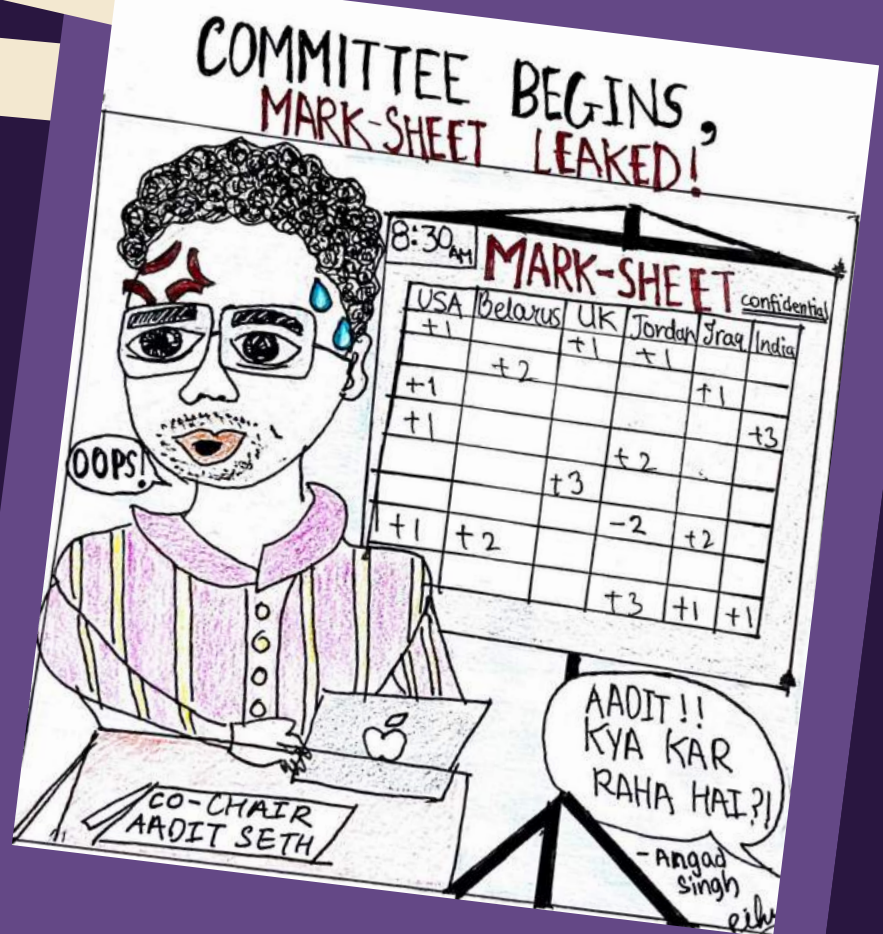 COMMITTEE BEGINS,
MARK-SHEET LEAKED!
8:30 AM
MARK-SHEET
confidential
USA Belarus UK Jordan Iraq India
+1 +1 +1
+2 +1
+1
+1 +3
+2
+3
-2 +2
+1 +2
+3 +1 +1
OOPS!
CO-CHAIR
AADIT SETH
AADIT!!
KYA KAR
RAHA HAI?!
-Angad
Singh